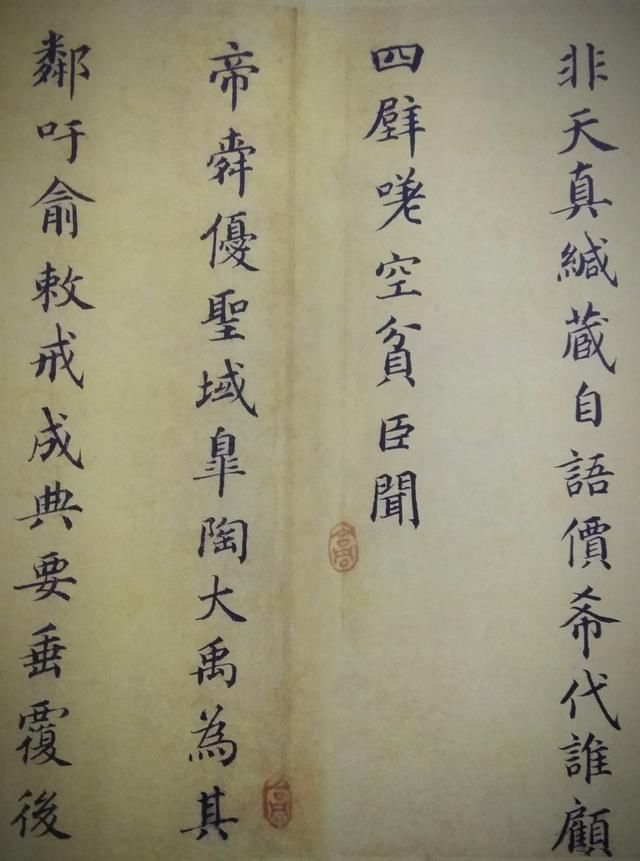 非天真緘藏自語價希代誰顧
四壁嗟空貧臣聞
帝舜優聖域皐陶大禹為其
鄰吁俞敕戒成典要垂覆後